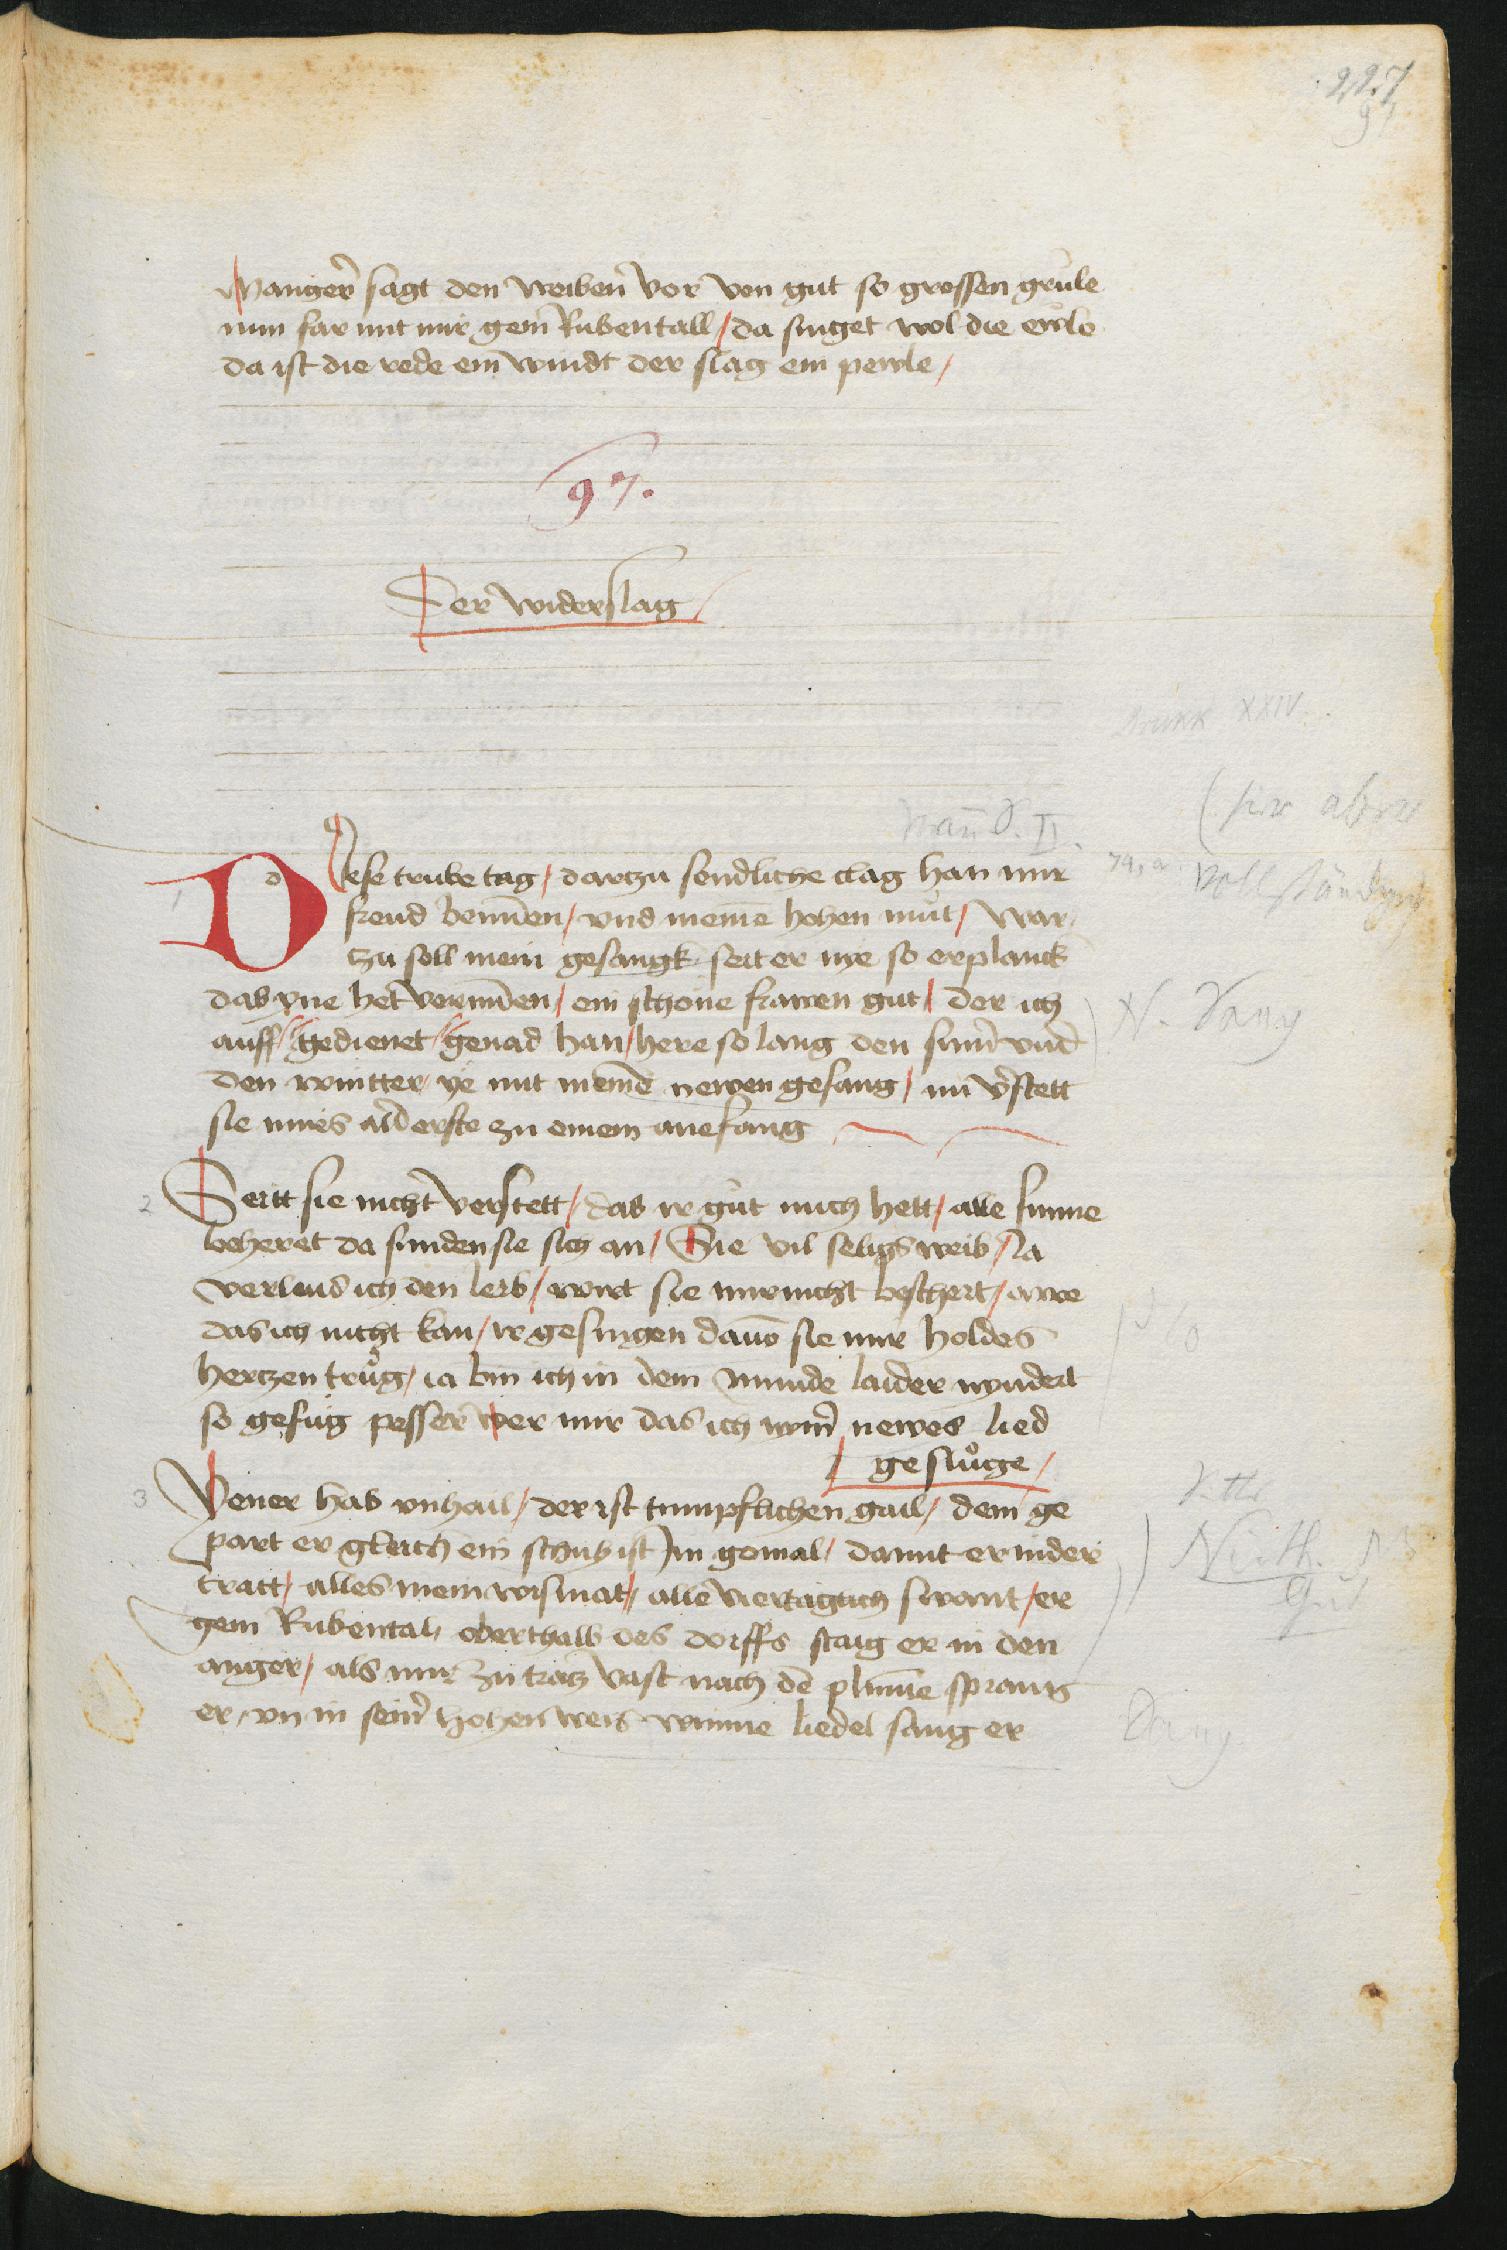 227
Maniger sagt den weiben vor von gut so grossen grule
nun far mit mir gein Rubentall / da singet wol die ewle
da ist die rede ein windt der slag ein pewle /
97.
Der widerslag
Drukk XXIV.
(hier aber
Man S. II
74, a. vollständig
1
Diese trube tag / darczu sendliche clag han mir
freud benumen / vnd meinē hohen mut / war
zu soll mein gesangk seit er nye so erplanck
das yne het vernumen / ein schone frawen gut / der ich
auff / gedienet / genad han / here so lang den sumer vnd
den wintter ye mit meinē newen gesang / nu v̄stett
sie mirs alderste zu einem anefang
N. Sang
2
Seitt sie nicht verstett / das ir gut mich hett / alle sinne
beheret da sunden sie sich an / Sie vil seligs weib / Ja
verleus ich den leib / wirt sie mir nicht beschert / awe
das ich nicht kan / ir gesingen dauō sie mir holdes
herczen trug / ia bin ich in dem munde laider nyndert
so gefug pesser wer mir das ich nym̄ newes lied
gesluge /
3
Yener hab vnhail / der ist tumpflichen gail / dem ge
part er gleich ein schutz ist Im gomal / damit er nider
tratt / alles mein wismat / alle viertaglich swant / er
gein Rubental / oberthalb des dorffs staig er in den
anger / als mir zu tratz vast nach dē plumē sprang
er / vn in seinr hohen weis winne liedel sang er
Nith.
Sang